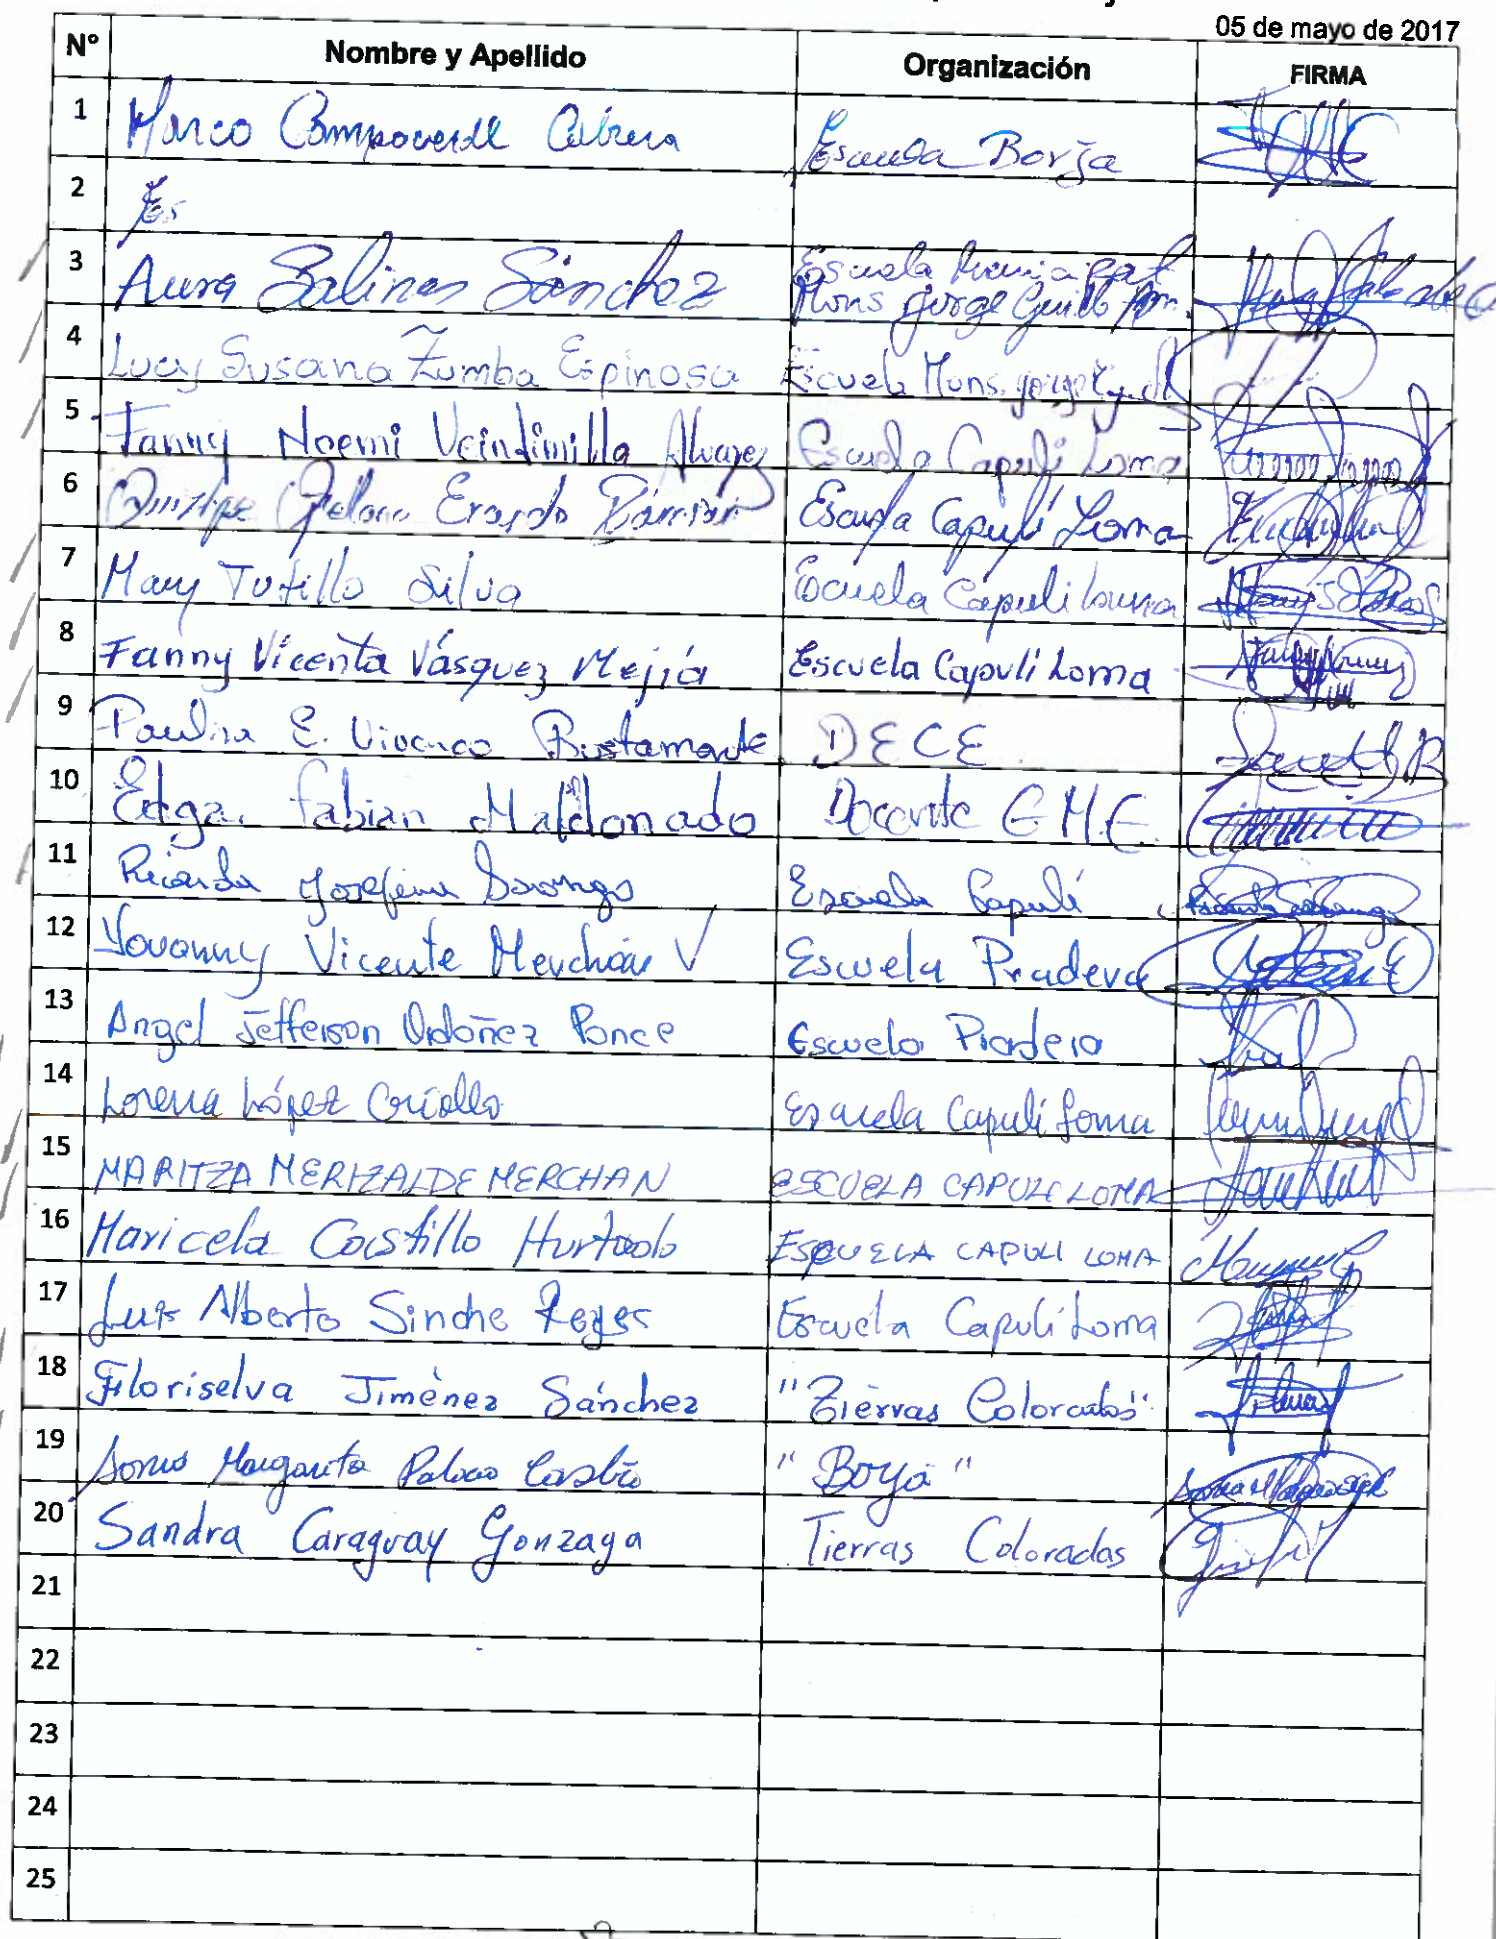 05 de mayo de 2017
N° Nombre y Apellido Organización FIRMA
1 Marco Campoverde Cabrera Escuela Borja
2 Es
3 Aura Salinas Sánchez Escuela Municipal
Mons Jorge Guillermo
4 Lucy Susana Zumba Espinosa Escuela Mons. Jorge
5 Fanny Noemi Veintimilla Alvarez Escuela Capulí Loma
6 Erardo Escuela Capulí Loma
7 Mary Tutillo Silva Escuela Capuli Loma
8 Fanny Vicenta Vásquez Mejía Escuela Capulí Loma
9 Paulina E. Vivanco Bustamante DECE
10 Edgar Fabian Maldonado Docente E.M.E.
11 Ricarda Josefina Escuela Capulí
12 Yovanny Vicente Merchán V Escuela Pradera
13 Angel Jefferson Ordoñez Ponce Escuela Pradera
14 Lorena López Criollo Escuela Capulí Loma
15 MARITZA MERIZALDE MERCHAN ESCUELA CAPULI LOMA
16 Maricela Castillo Hurtado ESCUELA CAPULI LOMA
17 Luis Alberto Sinche Reyes Escuela Capulí Loma
18 Floriselva Jiménez Sánchez "Tierras Coloradas"
19 Margarita Palacio Castro "Borja"
20 Sandra Caraguay Gonzaga Tierras Coloradas
21
22
23
24
25